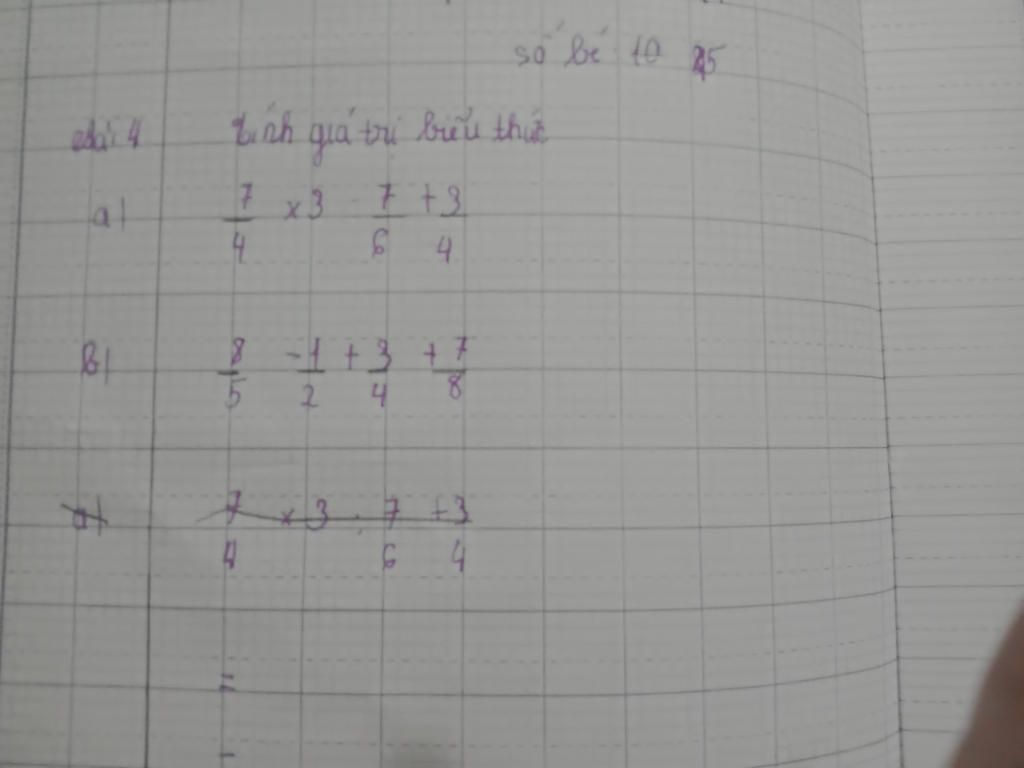 số bé 10 25
Bài 4 Tính giá trị biểu thức
a) 7/4 × 3 - 7/6 + 3/4
b) 8/5 - 1/2 + 3/4 + 7/8
a) 7/4 × 3 . 7/6 + 3/4
=
-